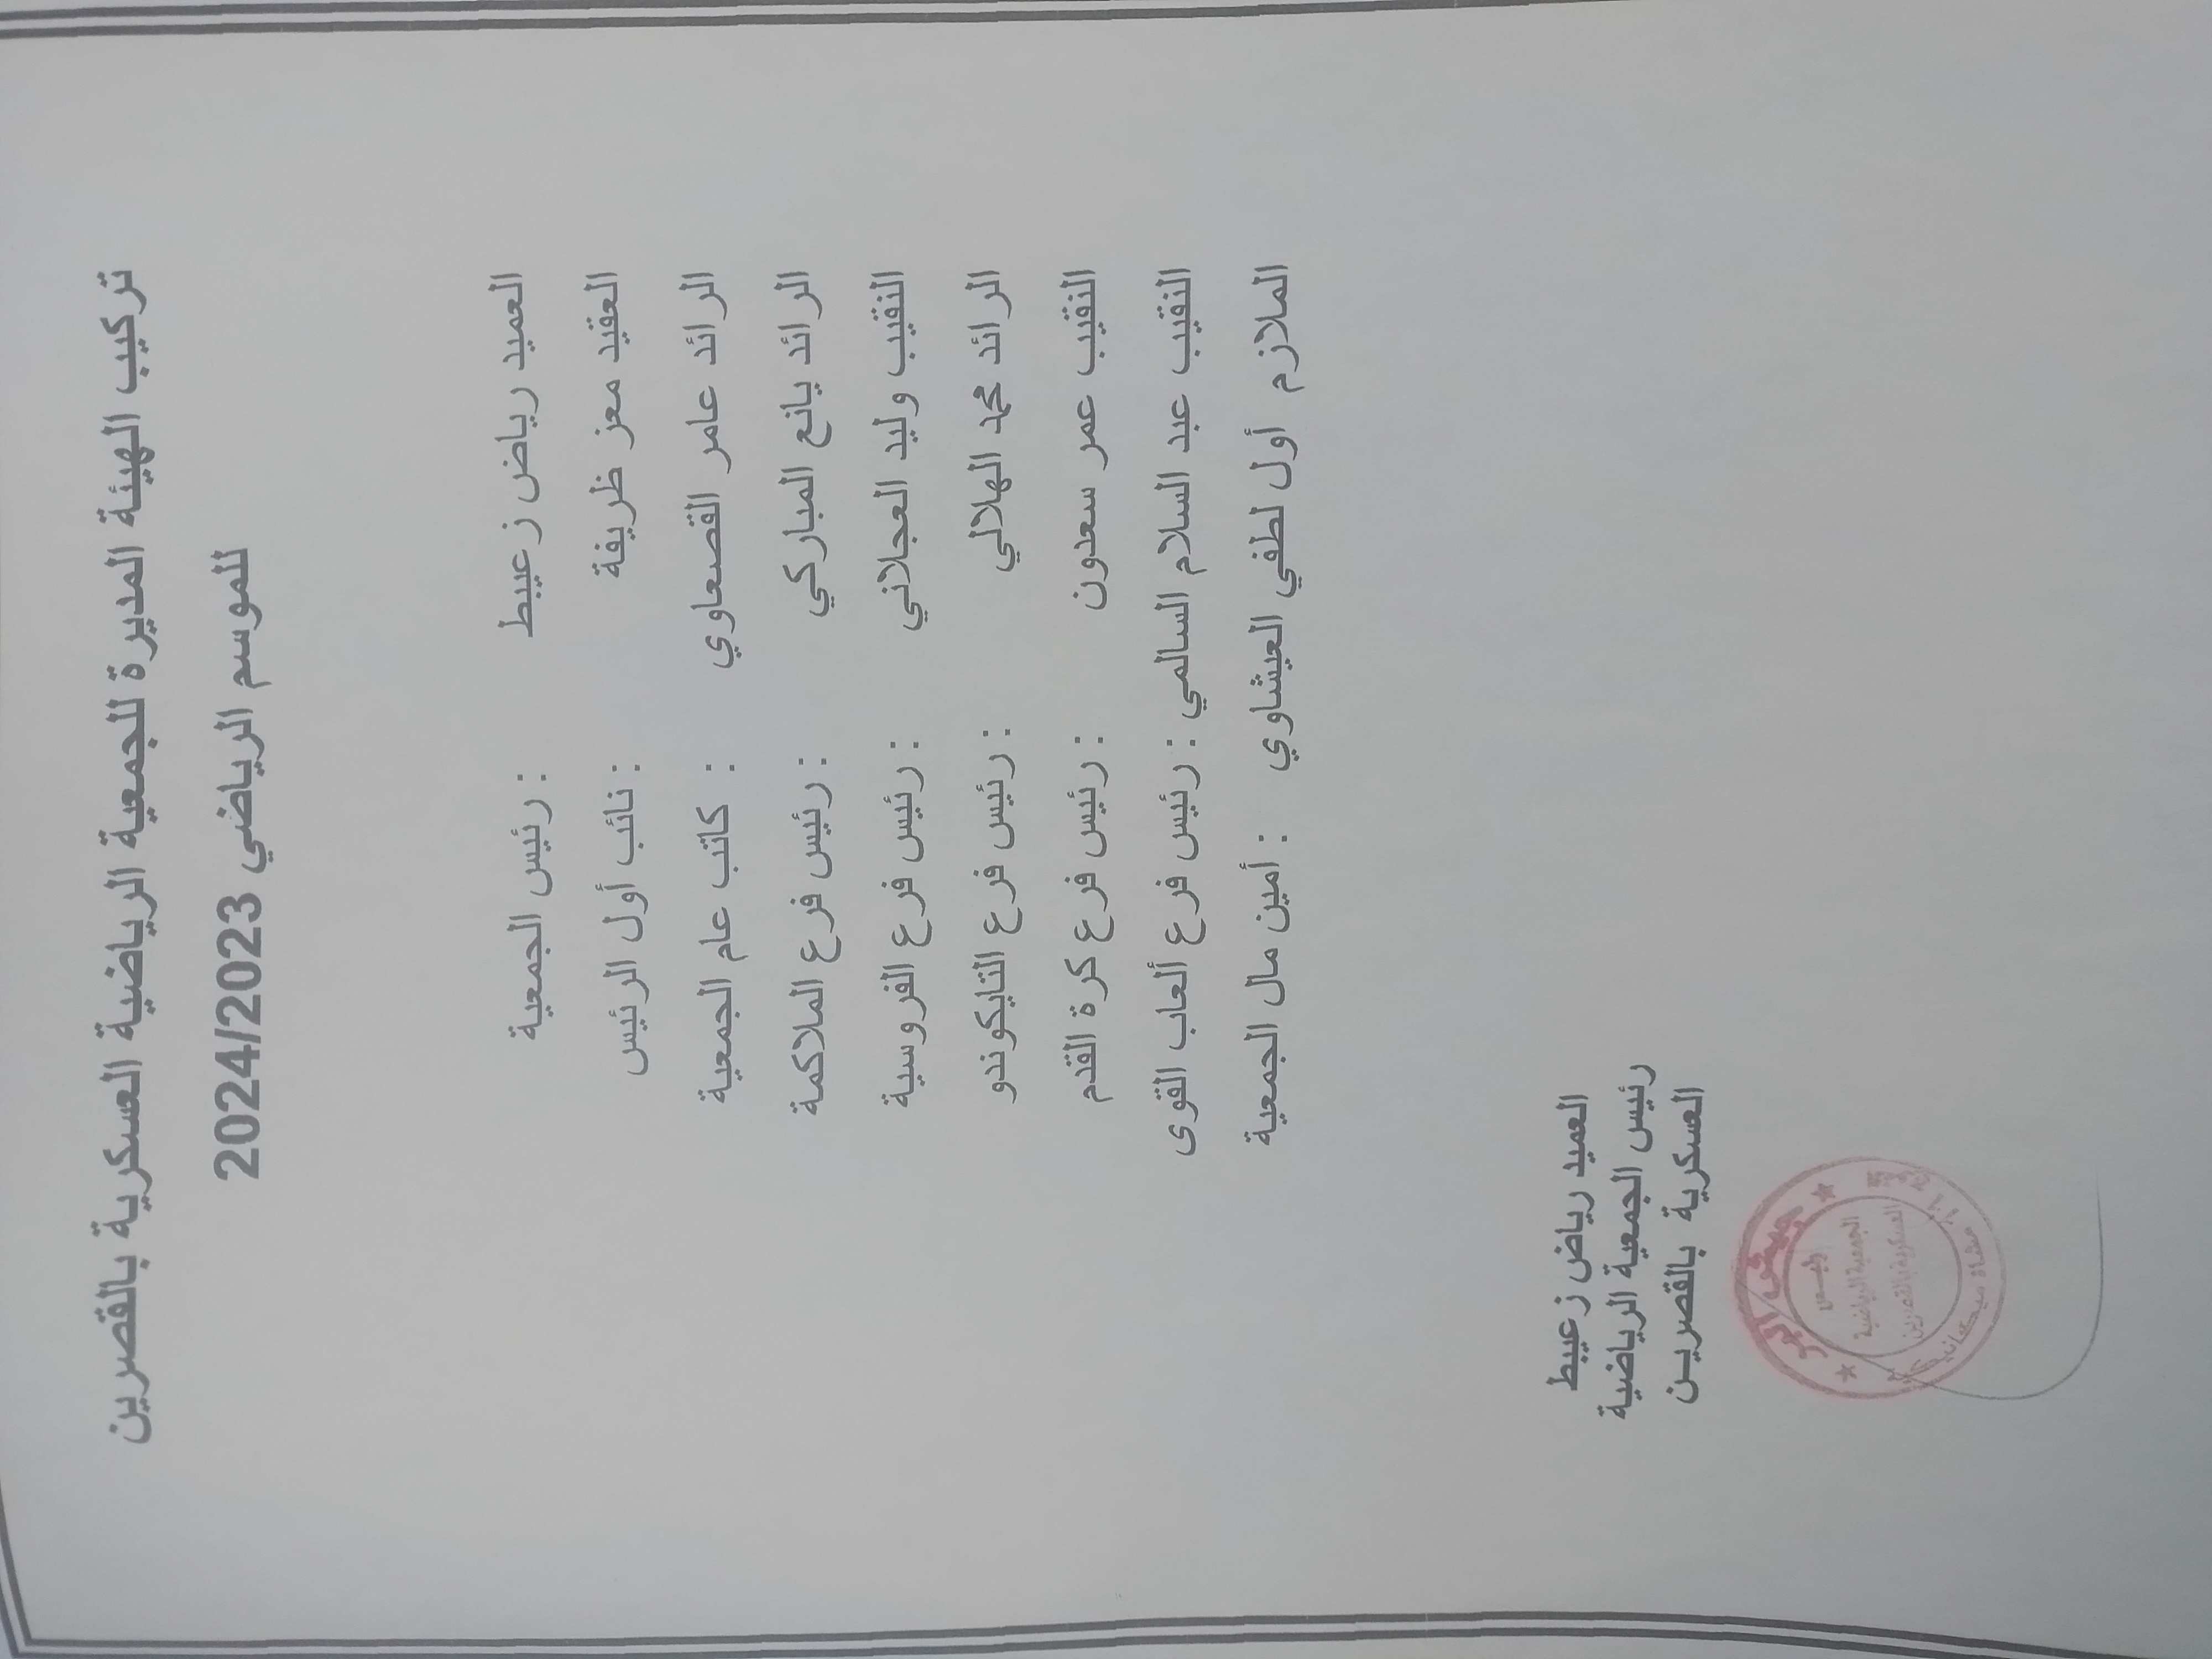 تركيب الهيئة المديرة للجمعية الرياضية العسكرية بالقصرين
للموسم الرياضي 2024/2023
العميد رياض زعيبط : رئيس الجمعية
العقيد معز ظريفة : نائب أول الرئيس
الرائد عامر القصعاوي : كاتب عام الجمعية
الرائد يانع المباركي : رئيس فرع الملاكمة
النقيب وليد العجلاني : رئيس فرع الفروسية
الرائد محمد الهلالي : رئيس فرع التايكوندو
النقيب عمر سعدون : رئيس فرع كرة القدم
النقيب عبد السلام السالمي : رئيس فرع ألعاب القوى
الملازم أول لطفي العيشاوي : أمين مال الجمعية
العميد رياض زعيبط
رئيس الجمعية الرياضية
العسكرية بالقصرين
جيش البر
رئيس
الجمعية الرياضية
العسكرية بالقصرين